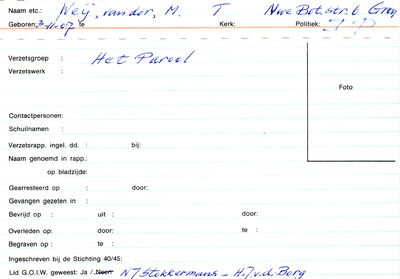 Naam etc.: Weij, van der, M. T Nwe Bot.str. 6 Gron
Geboren: 2-11-07 te Kerk: Politiek:
Verzetsgroep : Het Parool
Verzetswerk :
Foto
Contactpersonen:
Schuilnamen :
Verzetsrapp. ingel. dd. : bij:
Naam genoemd in rapp.:
op bladzijde:
Gearresteerd op : door:
Gevangen gezeten in :
Bevrijd op : uit : door:
Overleden op : door: te :
Begraven op : te :
Ingeschreven bij de Stichting 40/45:
Lid G.O.I.W. geweest: Ja / Neen NJ Stokkermans - H.J.v.d. Berg